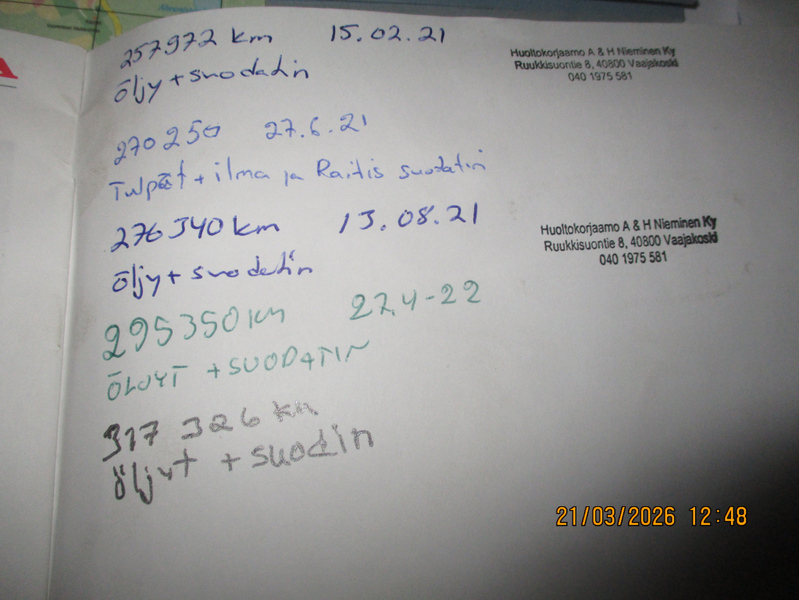 257972 km 15.02.21
öljy + suodatin
Huoltokorjaamo A & H Nieminen Ky
Ruukkisuontie 8, 40800 Vaajakoski
040 1975 581
270 250 27.6.21
Tulpat + ilma ja Raitis suodatin
276340 km 13.08.21
öljy + suodatin
Huoltokorjaamo A & H Nieminen Ky
Ruukkisuontie 8, 40800 Vaajakoski
040 1975 581
295350 km 27.4-22
ÖLJYT + SUODATIN
317 326 km
öljyt + suodin
21/03/2026 12:48